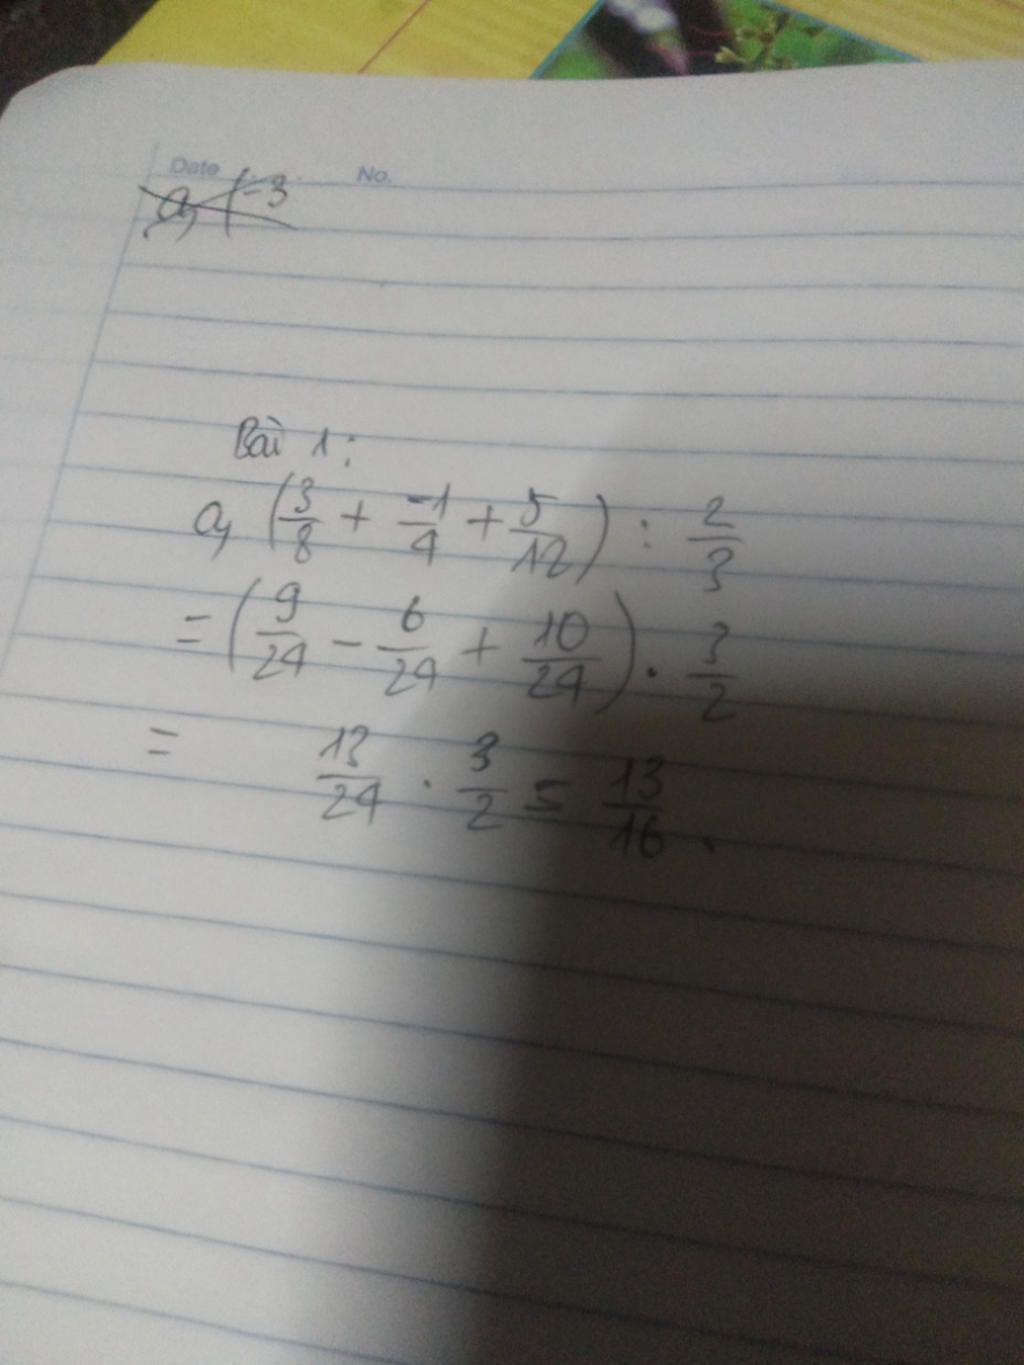 Date No.
a, (-3
Bài 1:
a, (3/8 + -1/4 + 5/12) : 2/3
= (9/24 - 6/24 + 10/24) . 3/2
= 13/24 . 3/2 = 13/16 .